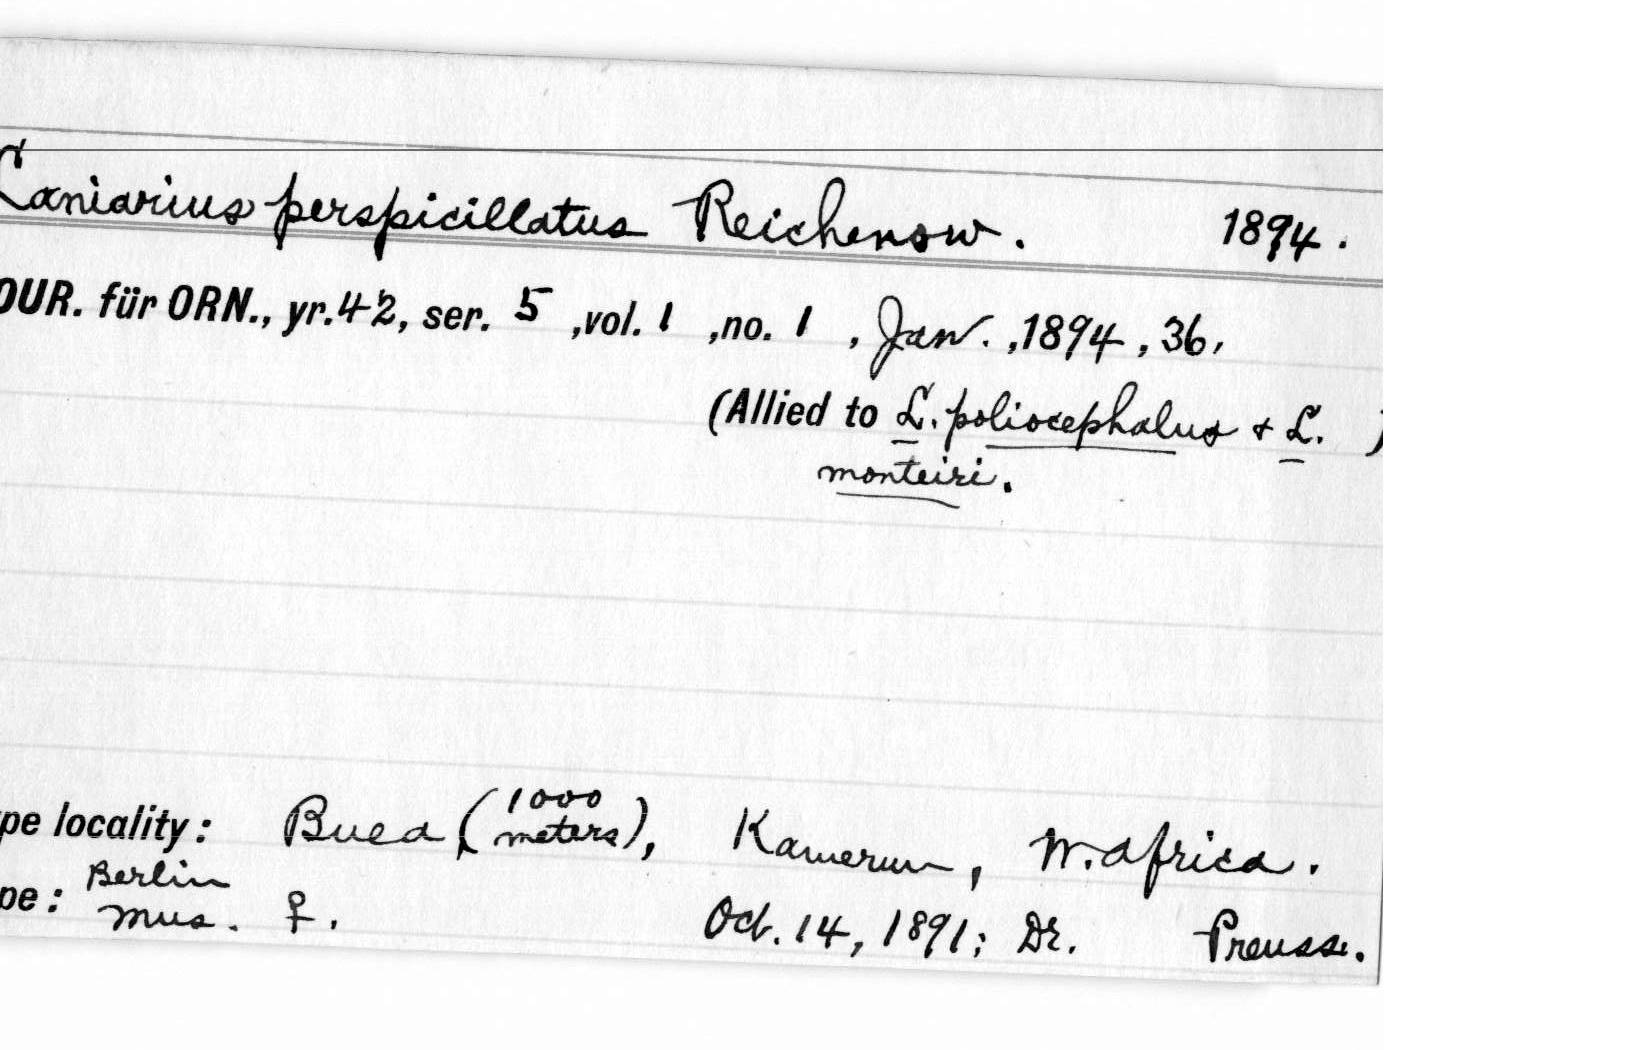 Laniarius perspicillatus Reichenow. 1894.
OUR. für ORN., yr.42, ser. 5 ,vol. 1 ,no. 1 , Jan. ,1894 , 36,
(Allied to L. poliocephalus + L. )
monteiri.
pe locality: Buea (1000 meters), Kamerun, W. Africa.
pe: Berlin Mus. ♀. Oct. 14, 1891; Dr. Preuss.